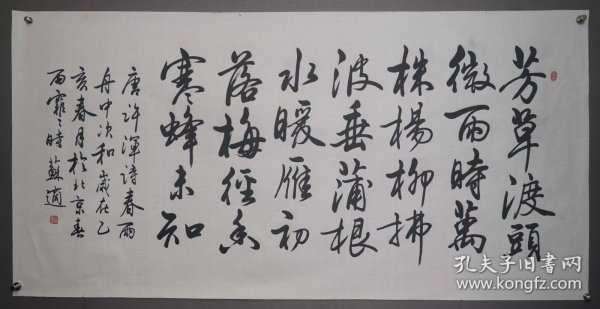 芳草渡頭
微雨時萬
株楊柳拂
波垂蒲根
水暖雁初
落梅徑香
寒蜂未知
唐許渾詩春雨
舟中次和歲在乙
亥春月於北京春
雨霏々時蘇適
孔夫子旧书网
www.kongfz.com